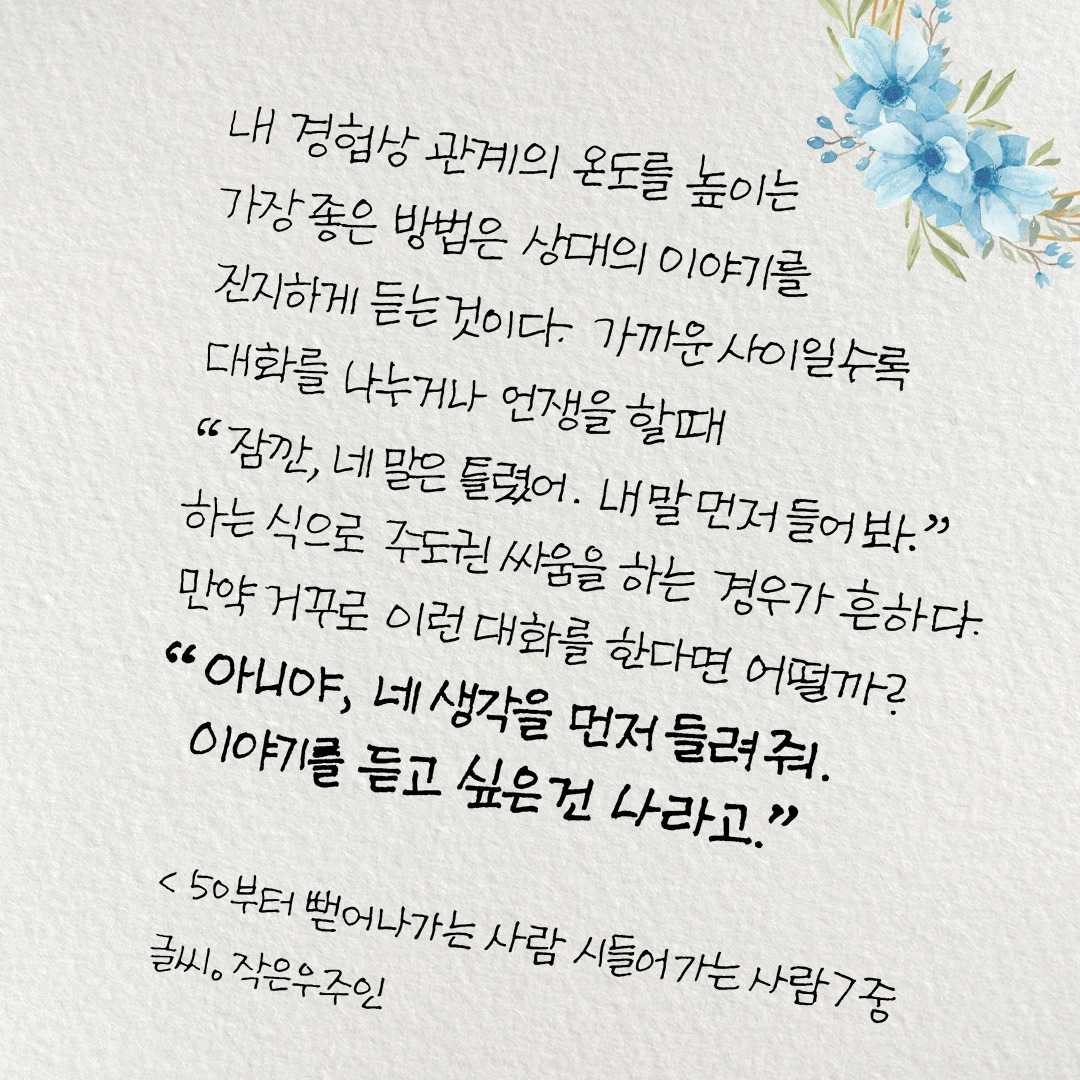 내 경험상 관계의 온도를 높이는
가장 좋은 방법은 상대의 이야기를
진지하게 듣는 것이다. 가까운 사이일수록
대화를 나누거나 언쟁을 할 때
“잠깐, 네 말은 틀렸어. 내 말 먼저 들어 봐.”
하는 식으로 주도권 싸움을 하는 경우가 흔하다.
만약 거꾸로 이런 대화를 한다면 어떨까?
“아니야, 네 생각을 먼저 들려 줘.
이야기를 듣고 싶은 건 나라고.”
< 50부터 뻗어나가는 사람 시들어가는 사람 > 중
글씨。작은우주인